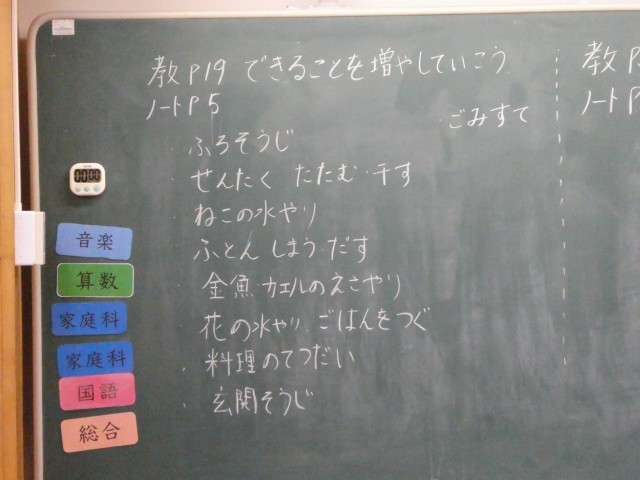 教P19 できることを増やしていこう
ノートP5
ごみすて
・ふろそうじ
・せんたく たたむ・干す
ねこの水やり
ふとん しまう・だす
金魚・カエルのえさやり
花の水やり ごはんをつぐ
・料理のてつだい
・玄関そうじ
教P
ノートP
00:00
音楽
算数
家庭科
家庭科
国語
総合